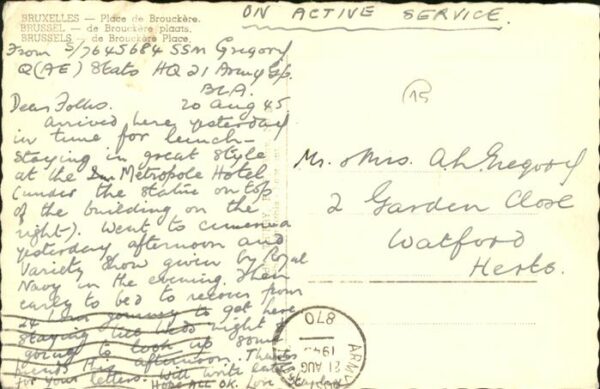 ON ACTIVE SERVICE.
BRUXELLES — Place de Brouckère.
BRUSSEL — de Brouckère plaats.
BRUSSELS — de Brouckère Place.
From S/7645684 SSM Gregory
Q(AE) Stats HQ 21 Army Gp.
BLA.
Dear Folks. 20 Aug 45
Arrived here yesterday
in time for lunch -
staying in great style
at the Metropole Hotel
(under the statue on top
of the building on the
right). Went to cinema
yesterday afternoon and
Variety Show given by Royal
Navy in the evening. Then
early to bed to recover from
24 hour journey to get here.
Staying till Weds night &
going to look up some
friends this afternoon. Thanks
for your letters. Will write later
Hope all OK. Love
15
Mr. & Mrs. A.L. Gregory
2 Garden Close
Watford
Herts.
ARMY
21 AUG
1945
870